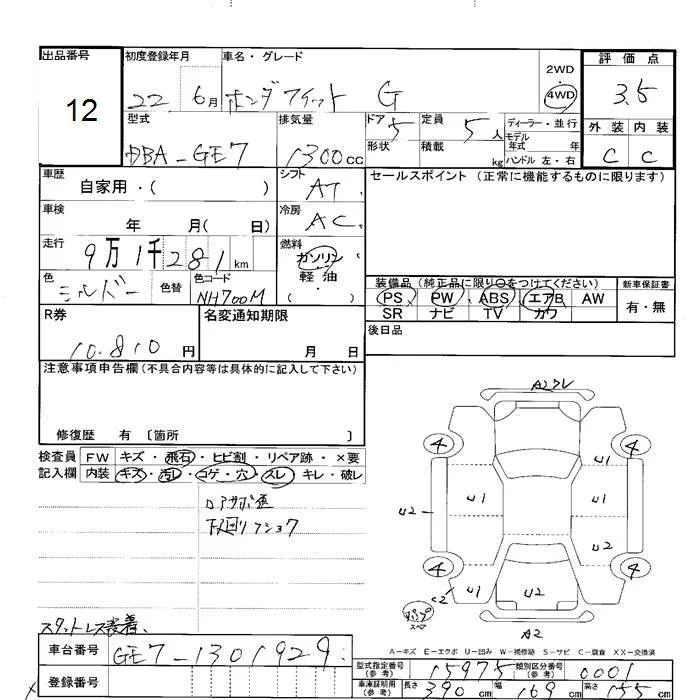 出品番号
12
初度登録年月
22 6月
車名・グレード
ホンダ フィット G
2WD
4WD
評価点
3.5
外装 内装
C C
型式
DBA-GE7
排気量
1300cc
ドア 5
形状
定員 5人
積載 kg
ディーラー・並行
モデル
年式 年
ハンドル 左・右
車歴
自家用・( )
シフト
AT
セールスポイント (正常に機能するものに限ります)
車検
年 月( 日)
冷房
AC
走行
9万1千281km
燃料
ガソリン
軽・油
( )
色
シルバー
色替
色コード
NH700M
装備品 (純正品に限り○をつけてください)
PS PW ABS エアB AW
SR ナビ TV カワ
新車保証書
有・無
R券
10.810円
名変通知期限
月 日
後日品
注意事項申告欄 (不具合内容等は具体的に記入して下さい)
修復歴 有 〔箇所 〕
検査員
記入欄
FW キズ・飛石・ヒビ割・リペア跡・×要
内装 キズ・汚レ・コゲ・穴・スレ・キレ・破レ
下廻リ
A2
4 4
U1
U1 U1
U2
U2
4 4
U1 U2
A2
スペア
A-キズ E-エクボ U-凹み W-補修跡 S-サビ C-腐食 XX-交換済
スタットレス装着
車台番号
GE7-1301929
登録番号
型式指定番号
(参考)
15975
類別区分番号
(参考)
0001
車庫証明用
(参考)
長さ 390cm 幅 169cm 高さ 155cm